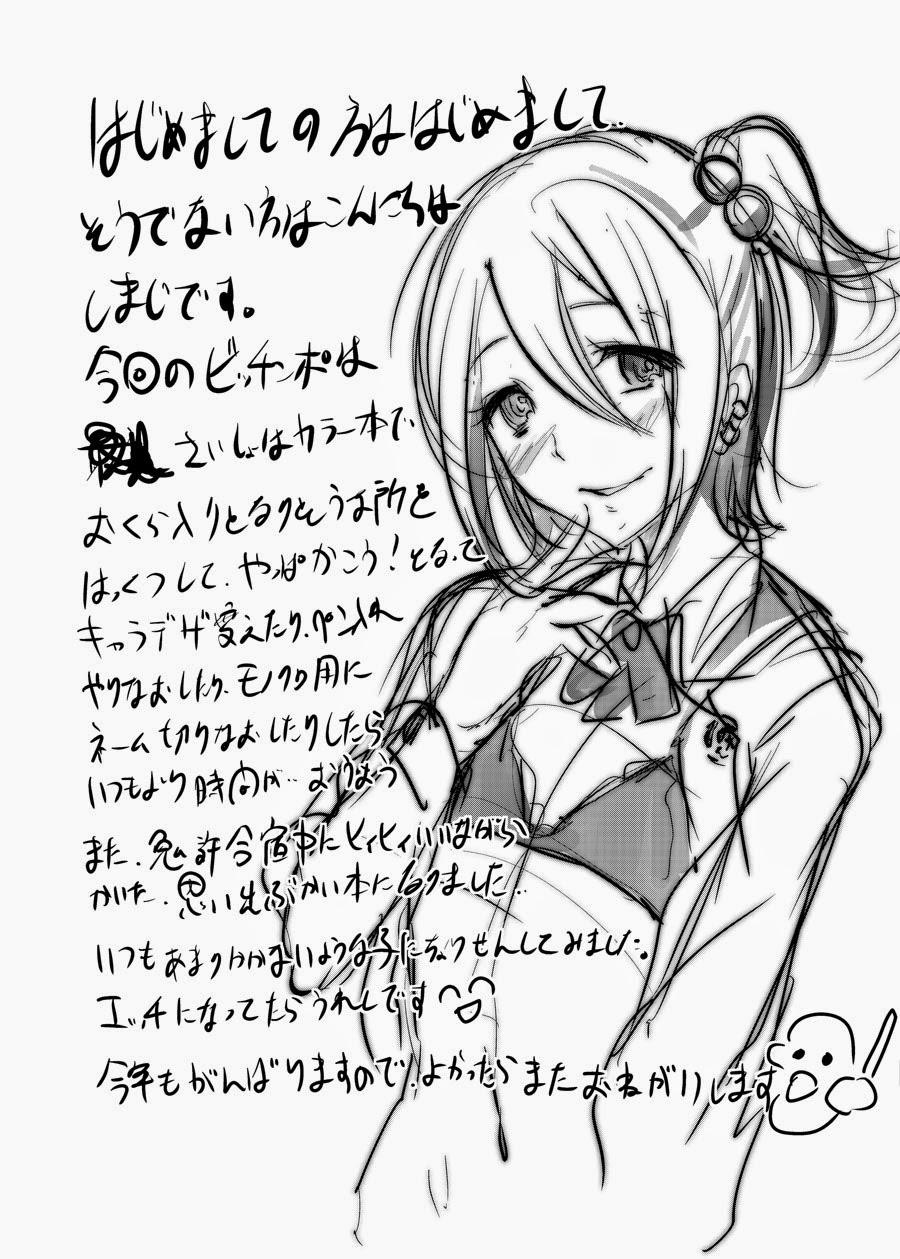 はじめましての方ははじめまして.
そうでない方はこんにちは
しまじです。
今回のビッチンポは
さいしょはカラー本で
おくら入りとなりそうな所を
はっくつして、やっぱかこう!となって
キャラデザ変えたり、ペン入れ
やりなおしたり、モノクロ用に
ネーム切りなおしたりしたら
いつもより時間が‥
また、免許合宿中にヒィヒィいいながら
かいた、思い出ぶかい本になりました‥
いつもあまりかかないような子にちょうせんしてみました。
エッチになってたらうれしいです
今年もがんばりますので、よかったらまたおねがいします